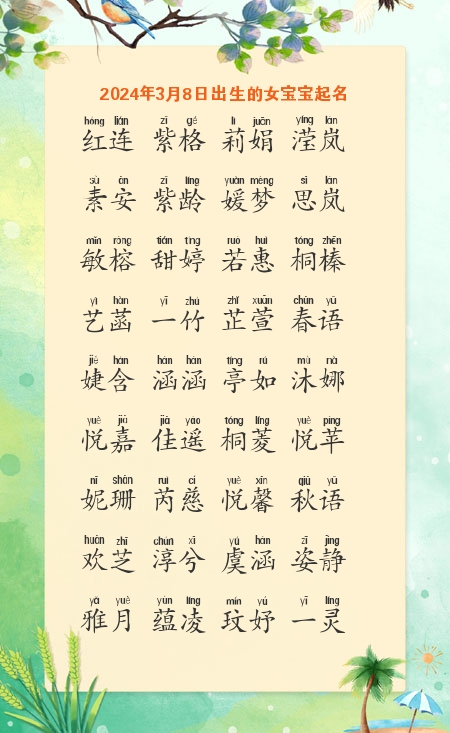 2024年3月8日出生的女宝宝起名
hóng lián zǐ gé lì juān yíng lán
红连 紫格 莉娟 滢岚
sù ān zǐ líng yuàn mèng sī lán
素安 紫龄 媛梦 思岚
mǐn róng tián tíng ruò huì tóng zhēn
敏榕 甜婷 若惠 桐榛
yì hàn yī zhú zhǐ xuān chūn yǔ
艺菡 一竹 芷萱 春语
jié hán hán hán tíng rú mù nà
婕含 涵涵 亭如 沐娜
yuè jiā jiā yáo tóng líng yuè píng
悦嘉 佳遥 桐菱 悦苹
nī shān ruì cí yuè xīn qiū yǔ
妮珊 芮慈 悦馨 秋语
huān zhī chún xī yú hán zī jìng
欢芝 淳兮 虞涵 姿静
yǎ yuè yùn líng mín yú yī líng
雅月 蕴凌 玟妤 一灵